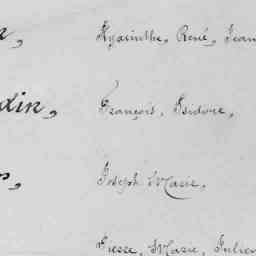 Hyacinthe, René, Jean
François, Isidore,
Joseph Marie,
Pierre, Marie, Julien